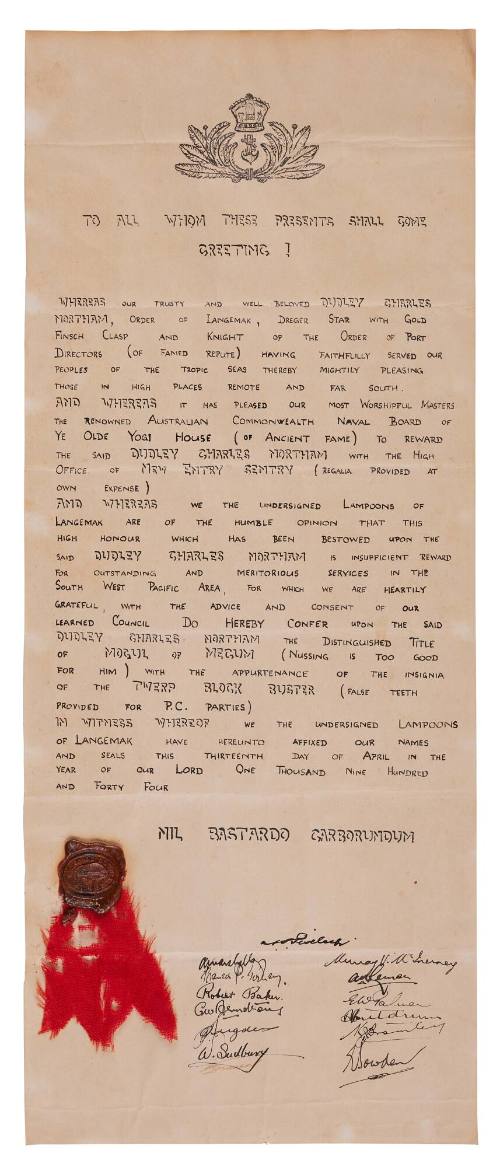 TO ALL WHOM THESE PRESENTS SHALL COME
GREETING !
WHEREAS OUR TRUSTY AND WELL BELOVED DUDLEY CHARLES
NORTHAM, ORDER OF LANGEMAK, DREGER STAR WITH GOLD
FINSCH CLASP AND KNIGHT OF THE ORDER OF PORT
DIRECTORS (OF FAMED REPUTE) HAVING FAITHFULLY SERVED OUR
PEOPLES OF THE TROPIC SEAS THEREBY MIGHTILY PLEASING
THOSE IN HIGH PLACES REMOTE AND FAR SOUTH.
AND WHEREAS IT HAS PLEASED OUR MOST WORSHIPFUL MASTERS
THE RENOWNED AUSTRALIAN COMMONWEALTH NAVAL BOARD OF
YE OLDE YOGI HOUSE (OF ANCIENT FAME) TO REWARD
THE SAID DUDLEY CHARLES NORTHAM WITH THE HIGH
OFFICE OF NEW ENTRY SENTRY (REGALIA PROVIDED AT
OWN EXPENSE)
AND WHEREAS WE THE UNDERSIGNED LAMPOONS OF
LANGEMAK ARE OF THE HUMBLE OPINION THAT THIS
HIGH HONOUR WHICH HAS BEEN BESTOWED UPON THE
SAID DUDLEY CHARLES NORTHAM IS INSUFFICIENT REWARD
FOR OUTSTANDING AND MERITORIOUS SERVICES IN THE
SOUTH WEST PACIFIC AREA, FOR WHICH WE ARE HEARTILY
GRATEFUL, WITH THE ADVICE AND CONSENT OF OUR
LEARNED COUNCIL DO HEREBY CONFER UPON THE SAID
DUDLEY CHARLES NORTHAM THE DISTINGUISHED TITLE
OF MOGUL OF MEGUM (NUSSING IS TOO GOOD
FOR HIM) WITH THE APPURTENANCE OF THE INSIGNIA
OF THE TWERP BLOCK BUSTER (FALSE TEETH
PROVIDED FOR P.C. PARTIES)
IN WITNESS WHEREOF WE THE UNDERSIGNED LAMPOONS
OF LANGEMAK HAVE HEREUNTO AFFIXED OUR NAMES
AND SEALS THIS THIRTEENTH DAY OF APRIL IN THE
YEAR OF OUR LORD ONE THOUSAND NINE HUNDRED
AND FORTY FOUR
NIL BASTARDO CARBORUNDUM
Murray
Robert Baker.
W. Sudbury